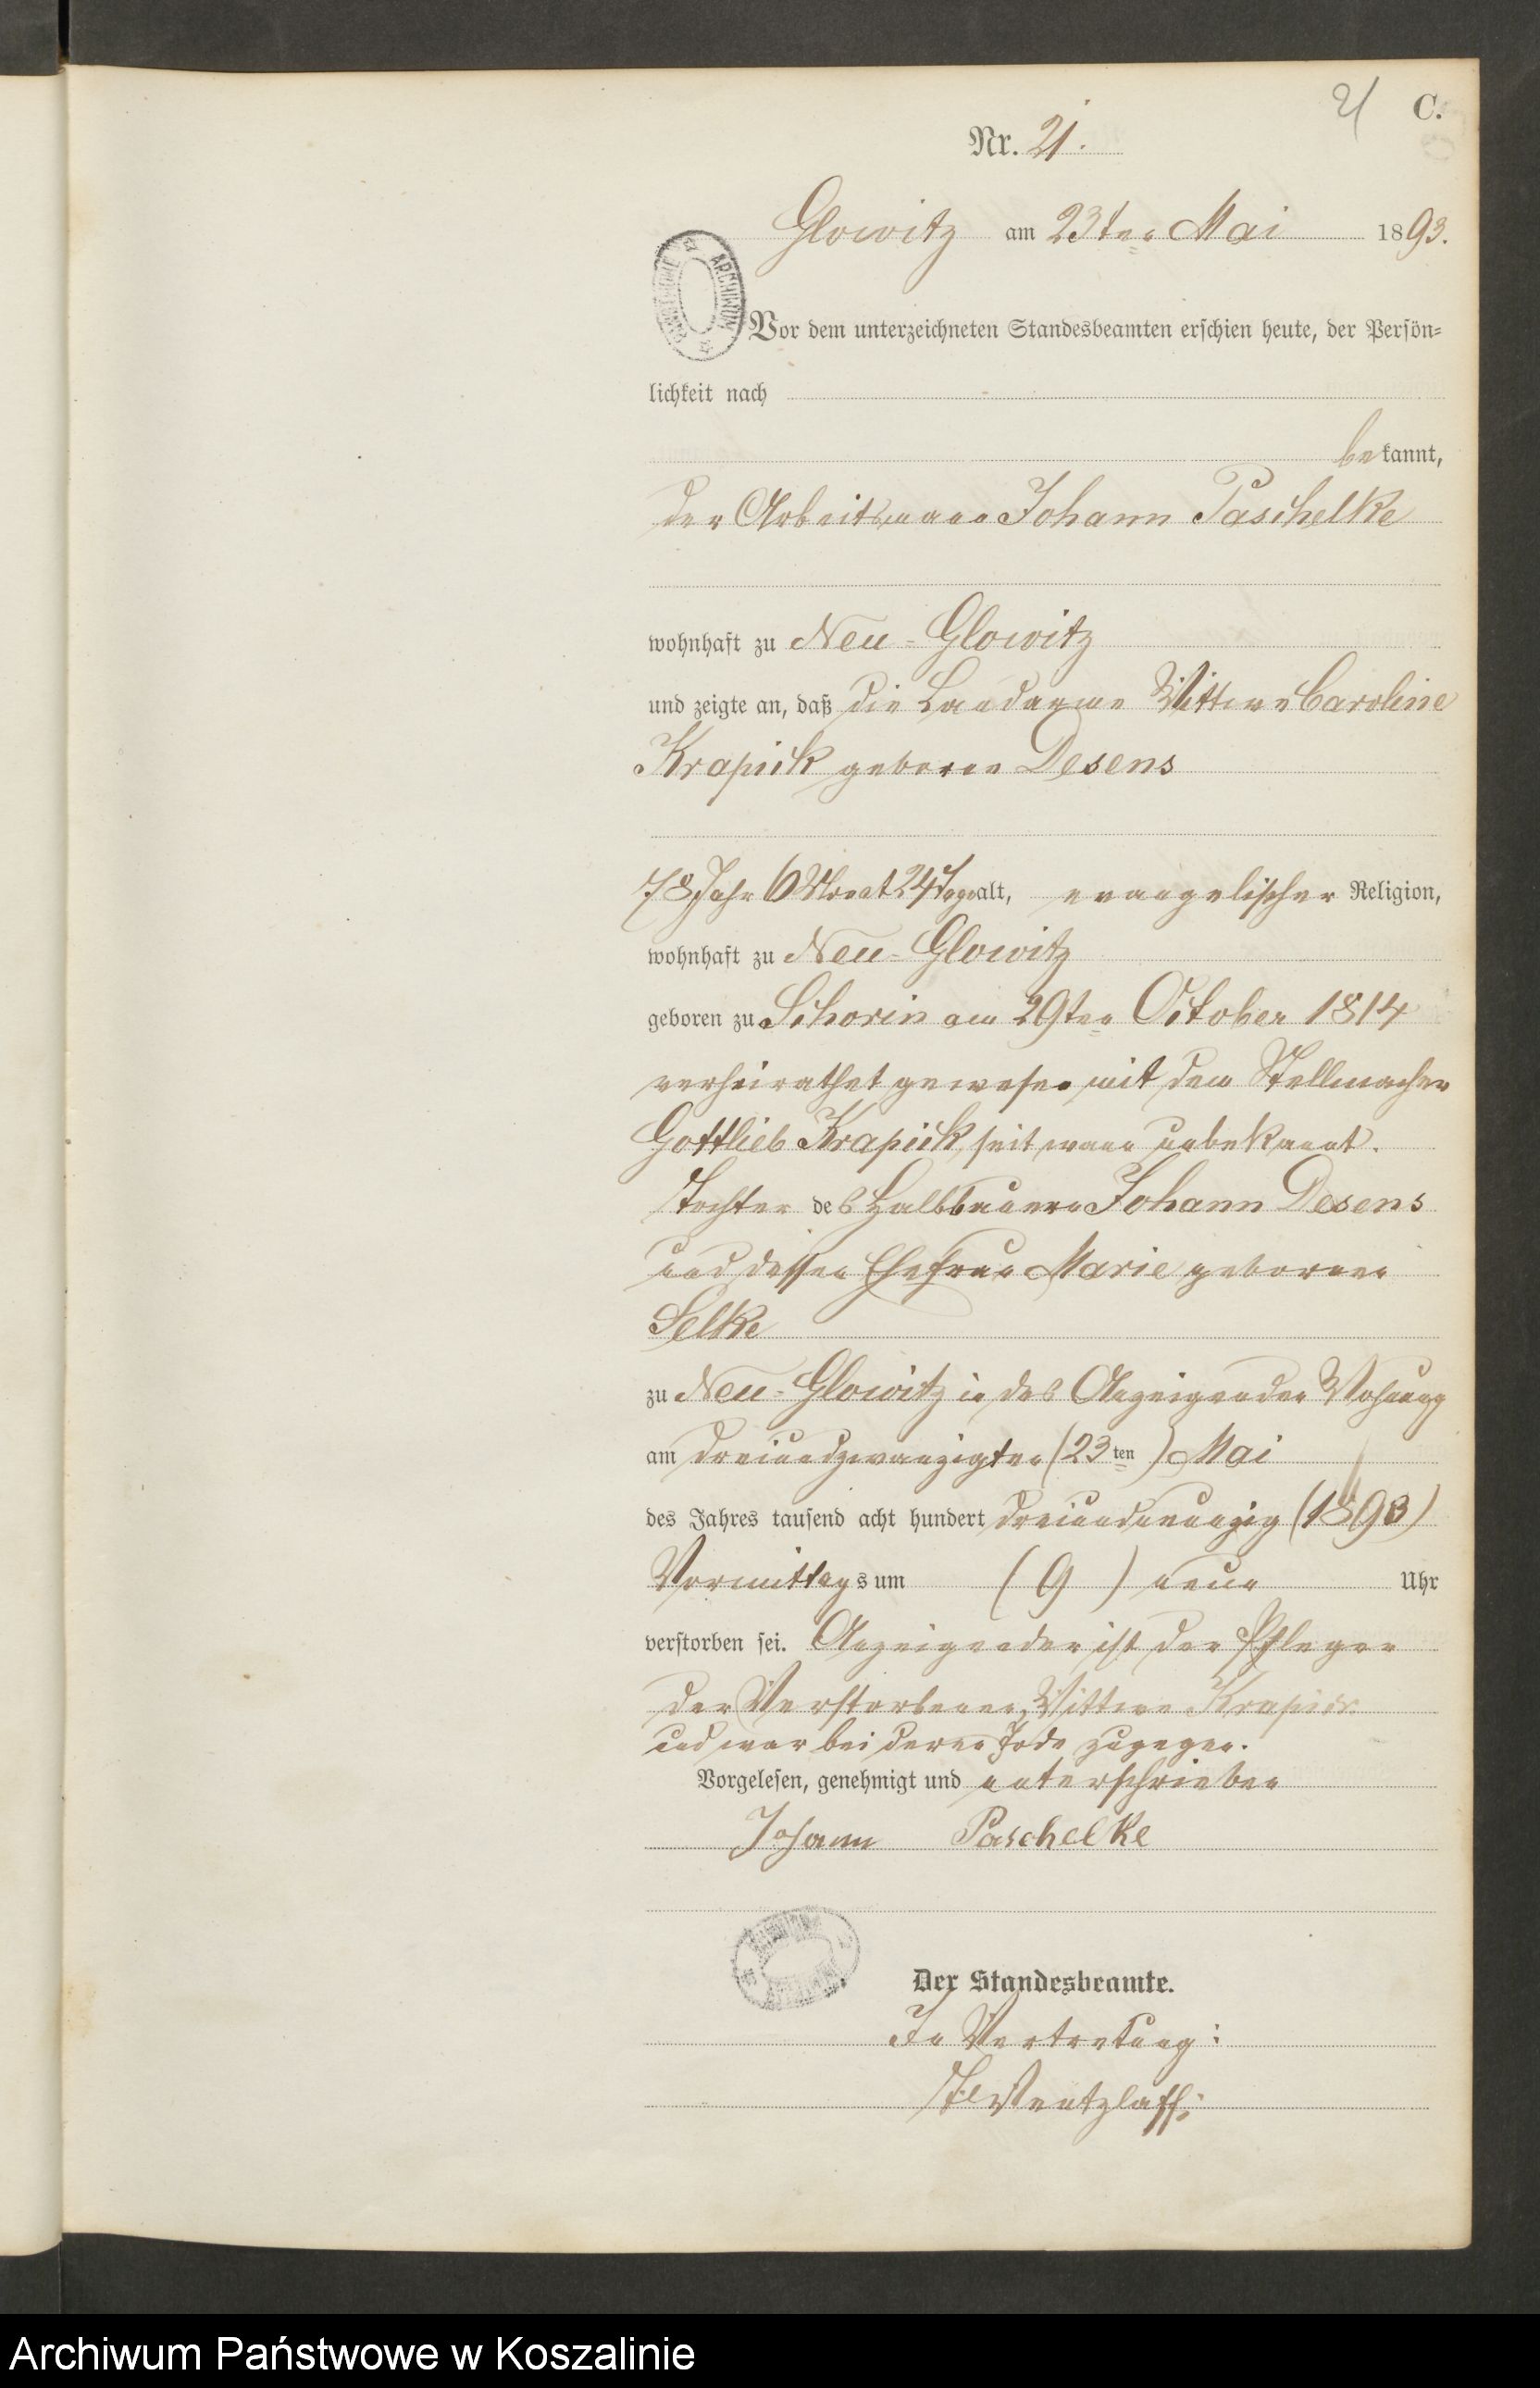 21 C.
Nr. 21.
Glowitz am 23ten Mai 1893.
Vor dem unterzeichneten Standesbeamten erschien heute, der Persön-
lichkeit nach
bekannt,
der Arbeitsmann Johann Paschelke
wohnhaft zu Neu-Glowitz
und zeigte an, daß die Landarme Wittwe Caroline
Krapick geborne Desens
78 Jahr 6 Monat 24 Tage alt, evangelischer Religion,
wohnhaft zu Neu-Glowitz
geboren zu Schorin am 29ten October 1814
verheirathet gewesen mit dem Stellmacher
Gottlieb Krapick, seit wann unbekannt.
Tochter des Halbbauern Johann Desens
und dessen Ehefrau Marie gebornen
Selke
zu Neu-Glowitz in des Anzeigenden Wohnung
am dreiundzwanzigten (23ten) Mai
des Jahres tausend acht hundert dreiundneunzig (1893)
Vormittags um (9) neun Uhr
verstorben sei. Anzeigender ist der Pfleger
der Verstorbenen, Wittwe Krapick
und war bei deren Tode zugegen.
Vorgelesen, genehmigt und unterschrieben
Johann Paschelke
Der Standesbeamte.
In Vertretung:
Wentzlaff.
ARCHIWUM
Archiwum Państwowe w Koszalinie